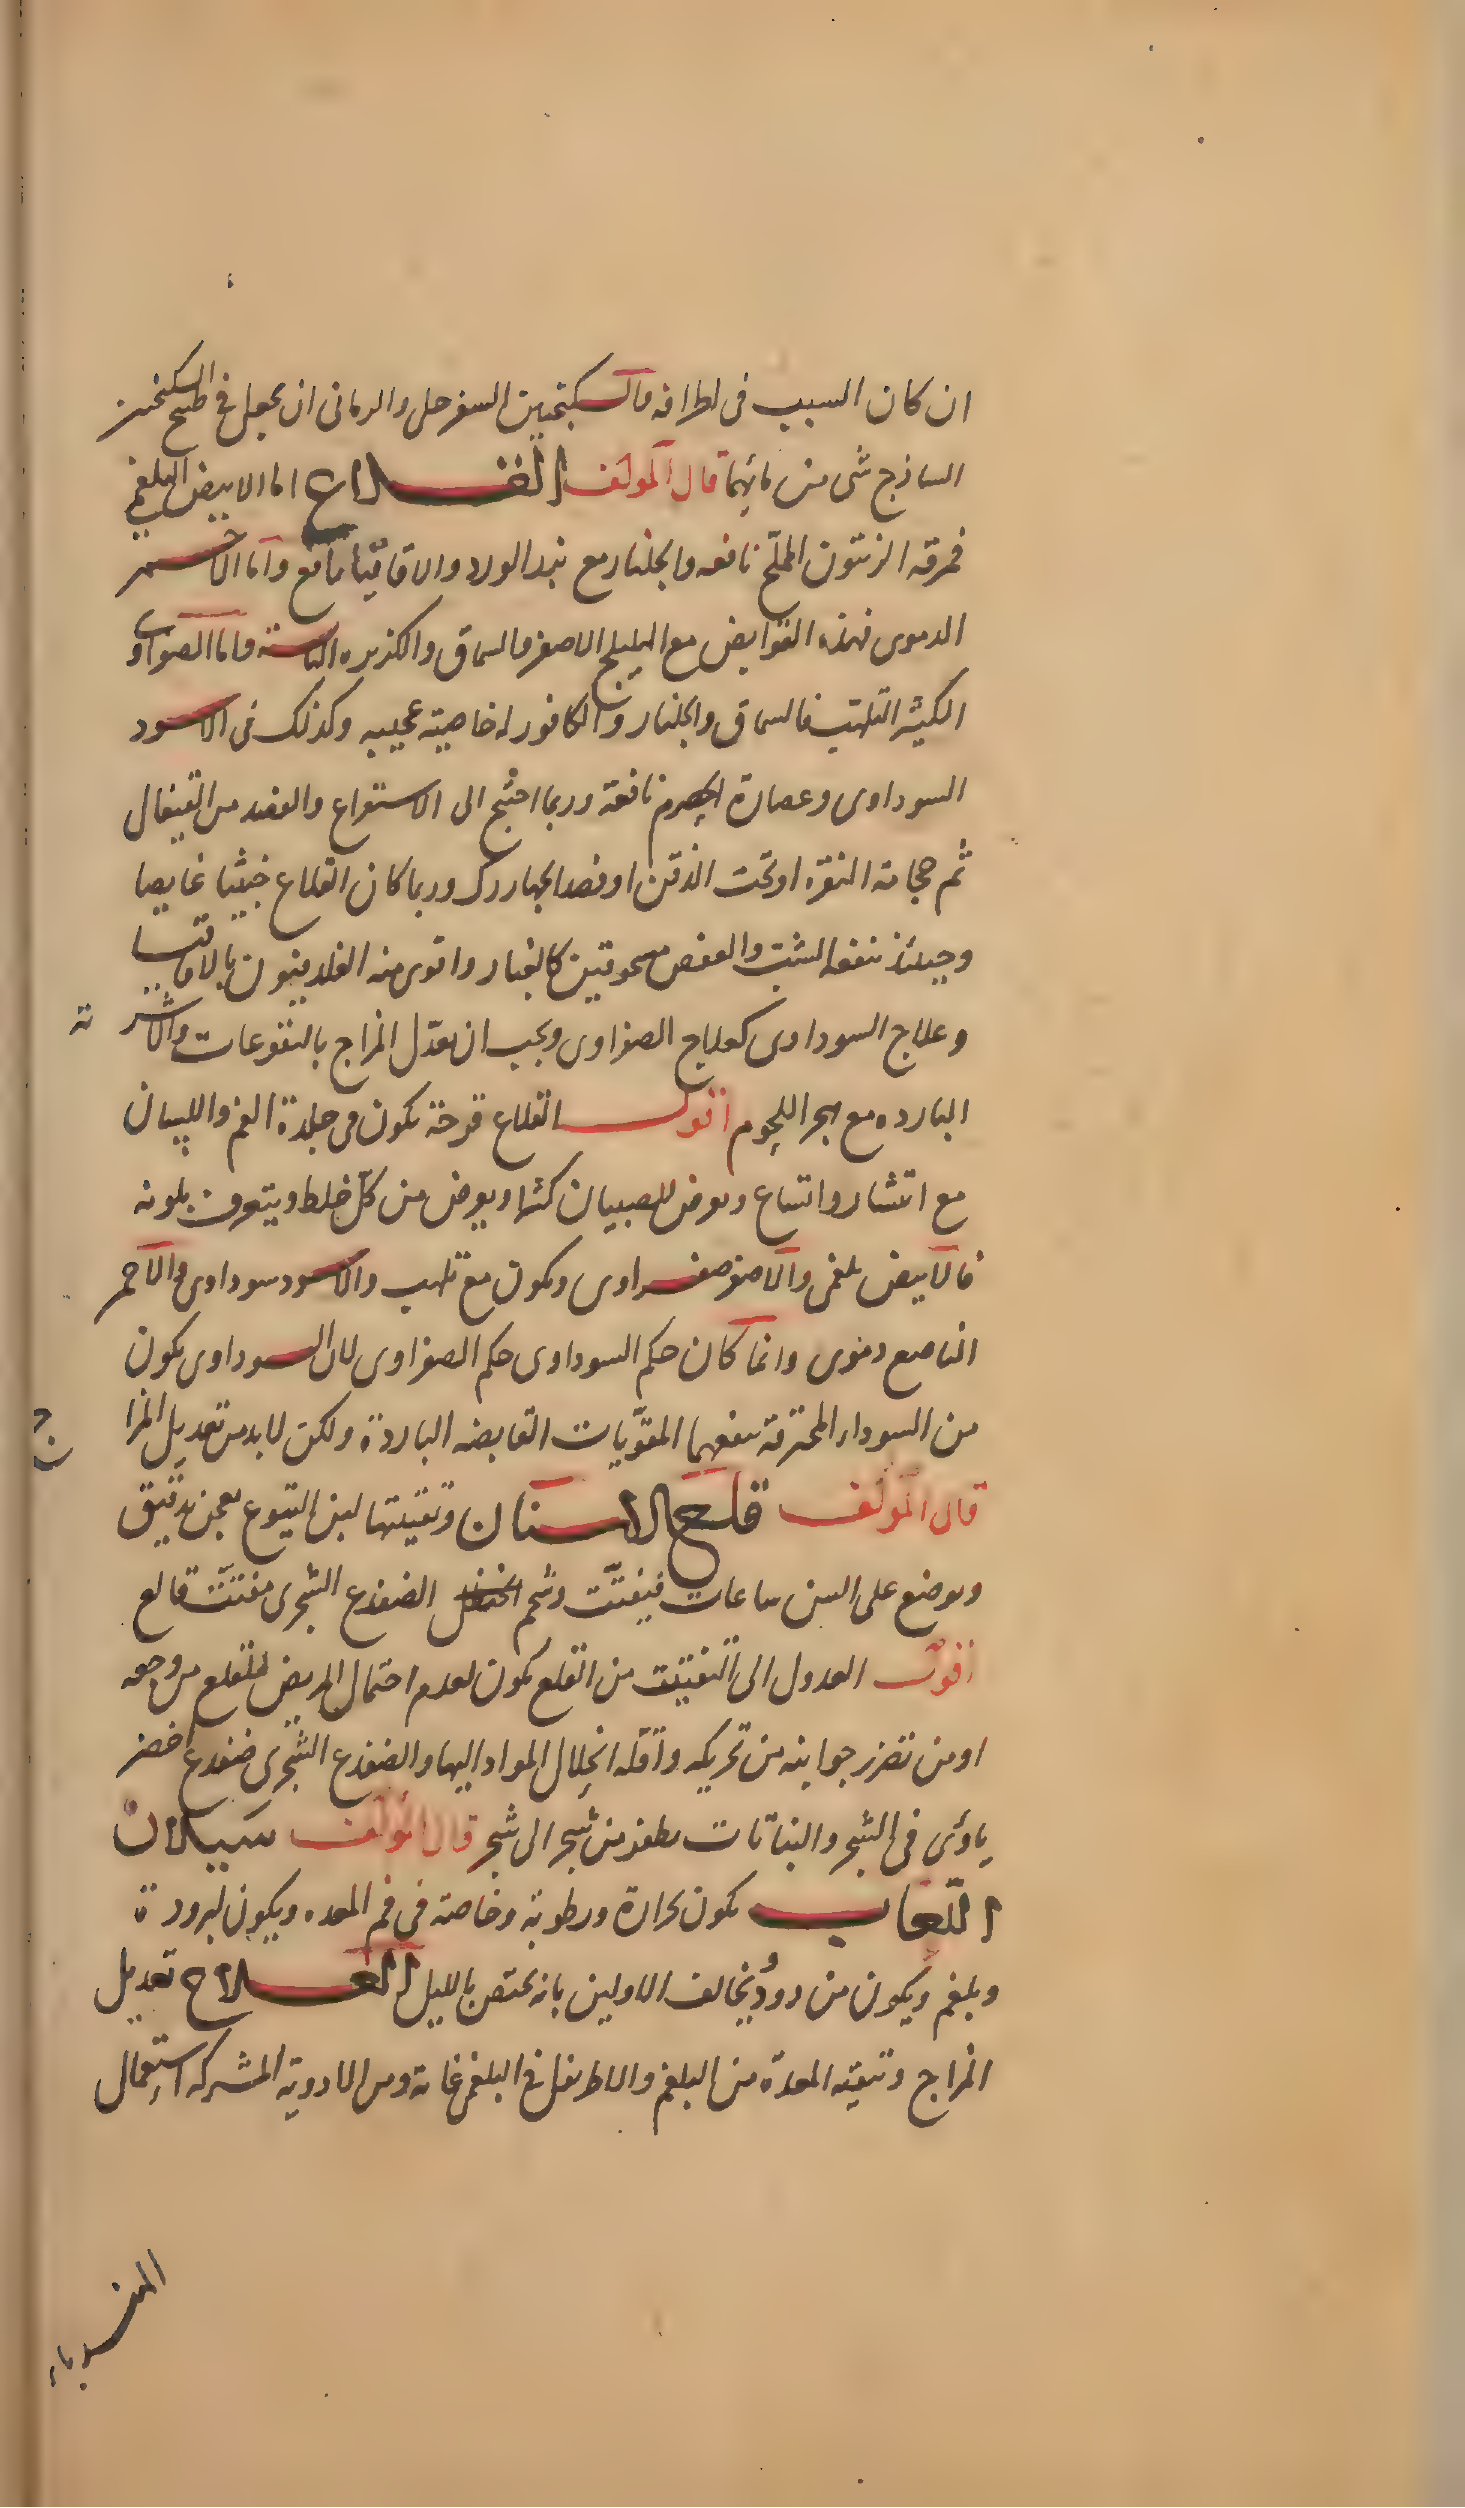 ان كان السبب فى اطرافه فالسكنجبين السفرجلى والرمانى ان يجعل فى طبخ السكنجبين
الساذج شى من مائهما قال المؤلف القلاع اما الابيض البلغمى
فمرقه الزيتون المملّح نافعه والجلنار مع بزر الورد والاقاقيا نافع واما الاحمر
الدموى فهذه القوابض مع الهليلج الاصفر والسماق والكزبره اليابسة واما الصفراوى
الكثير التلهب فالسماق والجلنار والكافور له خاصية عجيبه وكذلك فى الاسود
السوداوى وعصارة الحصرم نافعة وربما احتيج الى الاستفراغ والفصد من القيفال
ثم حجامة النقره او تحت الذقن او فصد الجهاررك وربما كان القلاع خبيثا غايصا
وحينئذ ينفعه الشب والعفص مسحوقين كالغبار واقوى منه الفلدفيون بالاقاقيا
وعلاج السوداوى كعلاج الصفراوى ويجب ان يعدّل المزاج بالنقوعات والاشربة
البارده مع هجر اللحوم اقول القلاع قرحة يكون فى جلدة الفم واللسان
مع انتشار واتساع ويعرض للصبيان كثيرا ويعرض من كلّ خلط ويتعرف بلونه
فالابيض بلغمى والاصفر صفراوى ويكون مع تلهب والاسود سوداوى والاحمر
الناصع دموى وانما كان حكم السوداوى حكم الصفراوى لان السوداوى يكون
من السوداء المحترقة ينفعهما المقوّيات القابضه الباردة ولكن لا بد من تعديل المزاج
قال المؤلف قلع الاسنان وتفتيتها لبن اليتوع يعجن بدقيق
ويوضع على السن ساعات فيفتّت وشحم الضفدع الشجرى مفتّت قالع
اقول العدول الى التفتيت من القلع يكون لعدم احتمال المريض للقلع من وجعه
او من تضرر جوانبه من تحريكه واقله انجلال المواد اليها والضفدع الشجرى ضفدع اخضر
ياوى فى الشجر والنباتات يطفر من شجر الى شجر قال المؤلف سيلان
اللعاب يكون لحرارة ورطوبة وخاصة فى فم المعده ويكون لبرودة
وبلغم ويكون من دود يخالف الاولين بانه يختص بالليل العلاج تعديل
المزاج وتنقيته المعدة من البلغم والاطريفل فى البلغمى غاية ومن الادوية المشتركه استعمال